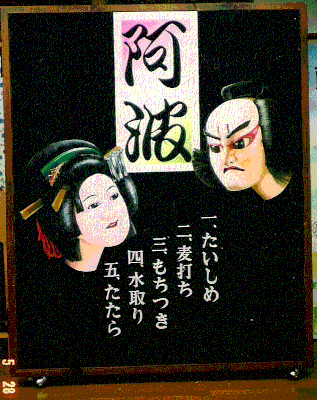 阿波
一、たいしめ
二、麦打ち
三、もちつき
四、水取り
五、たたら
5 28